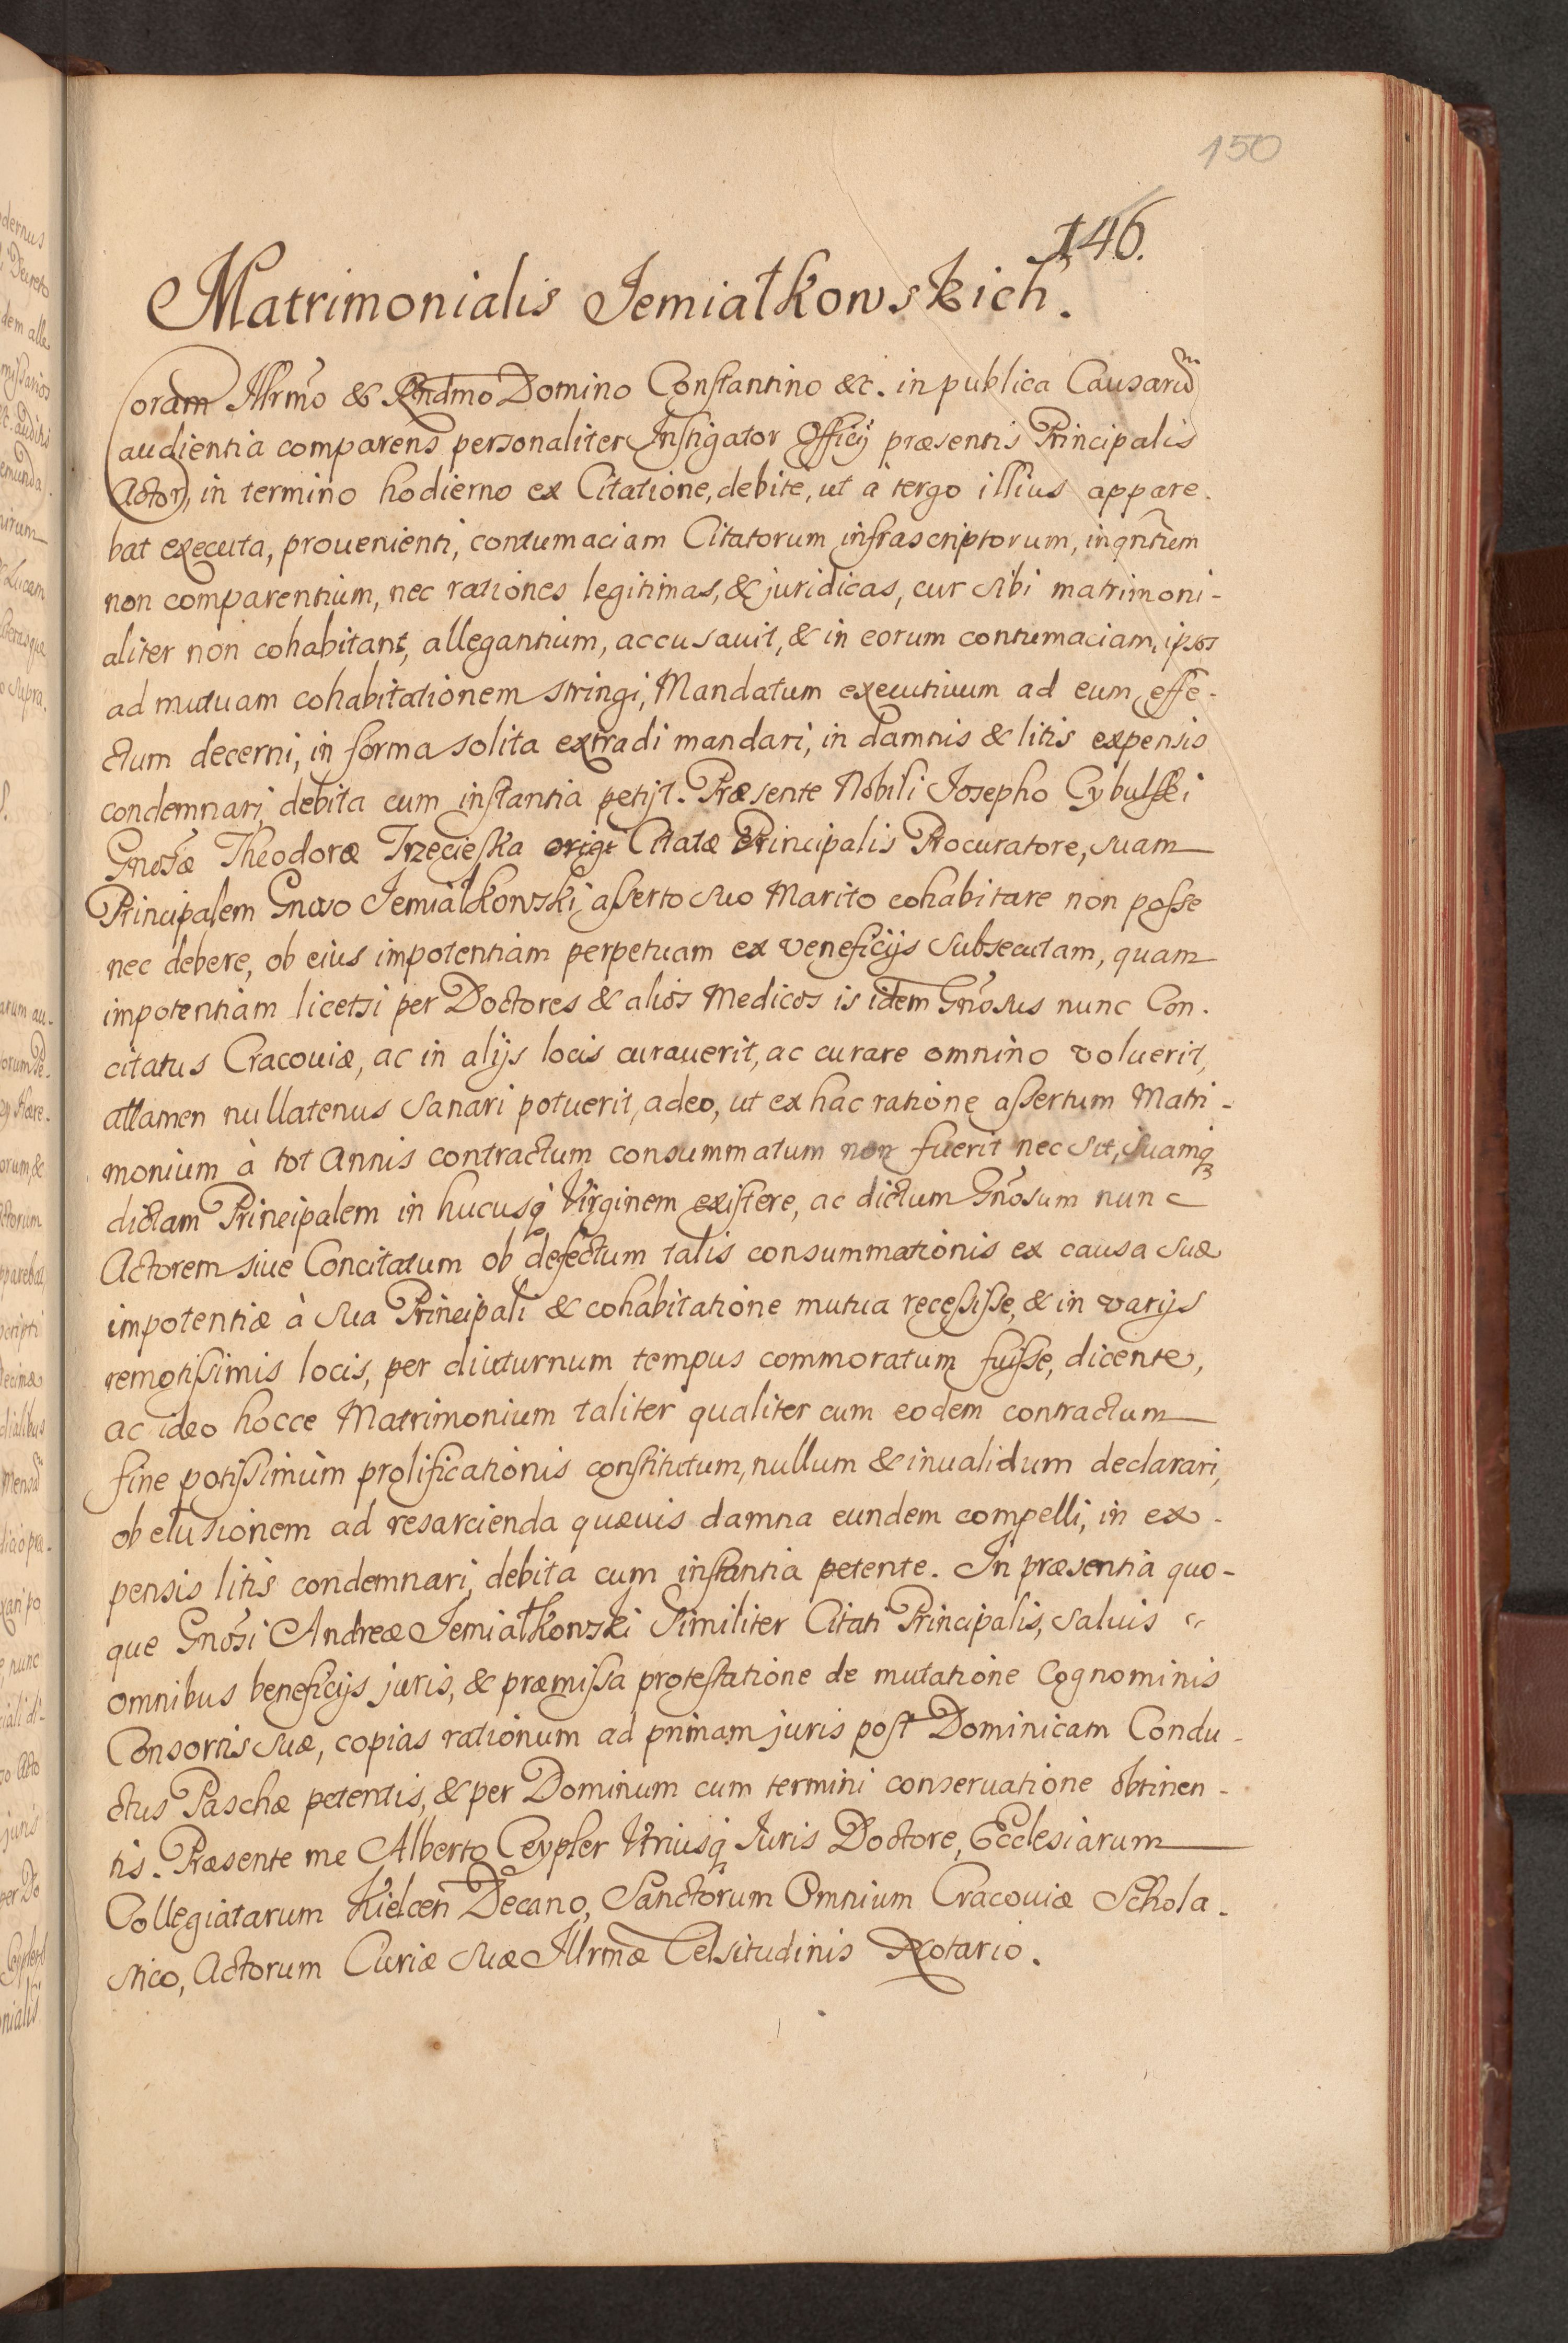 150
146.
Matrimonialis Jemiałkowskich.
Coram Illrmo & Rndmo Domino Constantino &c. in publica Causarũ
audientia comparens personaliter Instigator Officij præsentis Principalis
Actor, in termino hodierno ex Citatione, debite, ut à tergo illius appare-
bat executa, prouenienti, contumaciam Citatorum infrascriptorum, inqntũm
non comparentium, nec rationes legitimas, & juridicas, cur sibi matrimoni-
aliter non cohabitant, allegantium, accusauit, & in eorum contumaciam, ipsos
ad mutuam cohabitationem stringi, Mandatum executiuum ad eum effe-
ctum decerni, in forma solita extradi mandari, in damnis & litis expensis
condemnari debita cum instantia petijt. Præsente Nobili Josepho Cybulski
Gnosæ Theodoræ Trzecieska origt Citatæ Principalis Procuratore, suam
Principalem Gnoso Jemiałkowski asserto suo Marito cohabitare non posse
nec debere, ob eius impotentiam perpetuam ex veneficijs subsecutam, quam
impotentiam licetsi per Doctores & alios Medicos is idem Gnosus nunc Con-
citatus Cracouiæ, ac in alijs locis curauerit, ac curare omnino voluerit,
attamen nullatenus sanari potuerit, adeo, ut ex hac ratione assertum Matri-
monium à tot Annis contractum consummatum non fuerit nec sit, suamq
dictam Principalem in hucusq Virginem existere, ac dictum Gnosum nunc
Actorem siue Concitatum ob defectum talis consummationis ex causa suæ
impotentiæ à sua Principali & cohabitatione mutua recessisse, & in varijs
remotissimis locis, per diuturnum tempus commoratum fuisse, dicente,
ac ideo hocce Matrimonium taliter qualiter cum eodem contractum
fine potissimum prolificationis constitutum, nullum & inualidum declarari,
ob elusionem ad resarcienda quæuis damna eundem compelli, in ex-
pensis litis condemnari, debita cum instantia petente. In præsentia quo-
que Gnosi Andreæ Jemiałkowski similiter Citati Principalis, saluis
omnibus beneficijs juris, & præmissa protestatione de mutatione Cognominis
Consortis suæ, copias rationum ad primam juris post Dominicam Condu-
ctus Paschæ petentis, & per Dominum cum termini conseruatione obtinen-
tis. Præsente me Alberto Ceypler Vtriusq Juris Doctore, Ecclesiarum
Collegiatarum Kielcen Decano, Sanctorum Omnium Cracouiæ Schola-
stico, Actorum Curiæ suæ Illrmæ Celsitudinis Notario.